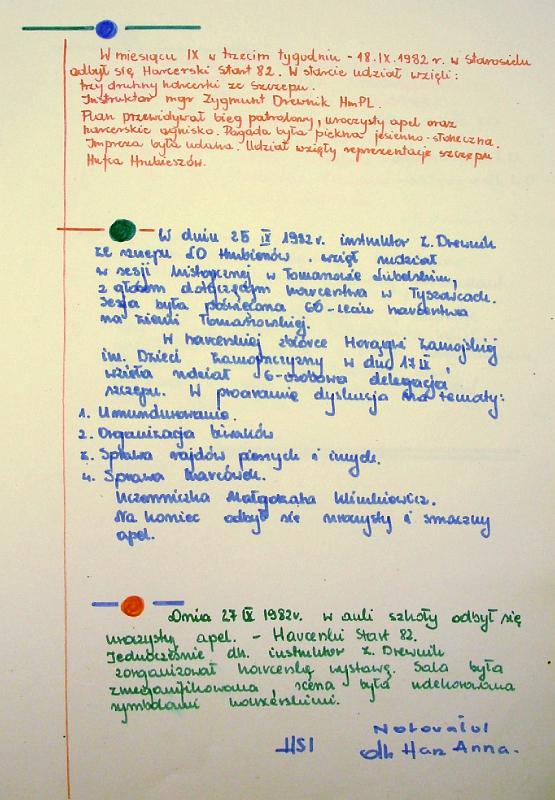 W miesiącu IX w trzecim tygodniu - 18.IX.1982 r. w Starosielu
odbył się Harcerski Start 82. W starcie udział wzięli:
trzy druhny harcerki ze szczepu.
Instruktor mgr Zygmunt Drewnik HmPL.
Plan przewidywał bieg patrolowy, uroczysty apel oraz
harcerskie ognisko. Pogoda była piękna jesienno-słoneczna.
Impreza była udana. Udział wzięły reprezentacje szczepu
Hufca Hrubieszów.
W dniu 25 IX 1982 r. instruktor Z. Drewnik
ze szczepu LO Hrubieszów. wziął udział
w sesji historycznej w Tomaszowie Lubelskim,
z głosem dotyczącym harcerstwa w Tyszowcach.
Sesja była poświęcona 60-leciu harcerstwa
na ziemi Tomaszowskiej.
W harcerskiej zbiórce Chorągwi Zamojskiej
im. Dzieci Zamojszczyzny w dniu 17 IX,
wzięła udział 6-osobowa delegacja
szczepu. W programie dyskusja na tematy:
1. Umundurowanie.
2. Organizacja biwaków
3. Sprawa rajdów pieszych i innych.
4. Sprawa harcówek.
Uczennica Małgorzata Klimkiewicz.
Na koniec odbył się uroczysty i smaczny
apel.
Dnia 27 IX 1982r. w auli szkoły odbył się
uroczysty apel. - Harcerski Start 82.
Jednocześnie dh. instruktor Z. Drewnik
zorganizował harcerską wystawę. Sala była
zmegafonikowana, scena była udekorowana
symbolami harcerskimi.
HSI
Notował
dh Harz Anna.